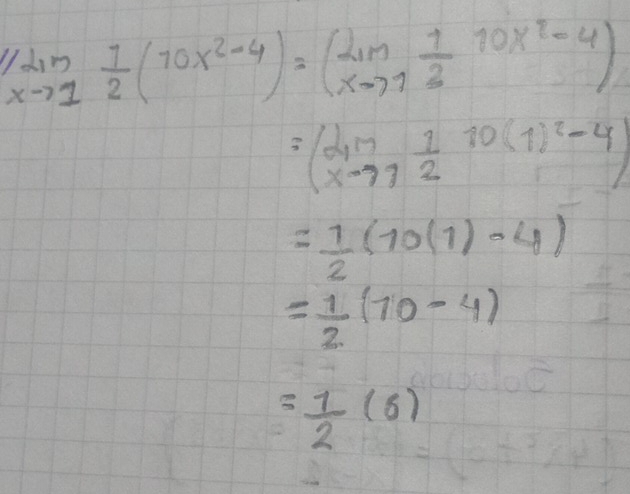 // Lim x→1 1/2 (10x²-4) = (Lim x→1 1/2 10x²-4)
= (Lim x→1 1/2 10(1)²-4)
= 1/2 (10(1)-4)
= 1/2 (10-4)
= 1/2 (6)